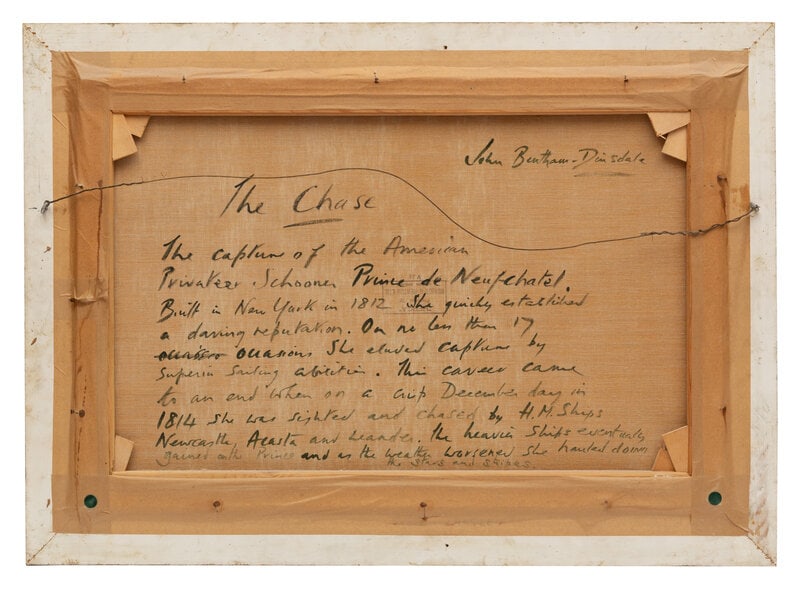 John Bentham-Dinsdale
The Chase
The capture of the American
Privateer Schooner Prince de Neufchatel.
Built in New York in 1812 She quickly established
a daring reputation. On no less than 17
occasions She eluded capture by
superior sailing abilities. This career came
to an end when on a crisp December day in
1814 she was sighted and chased by H.M. Ships
Newcastle, Acasta and Leander. the heavier ships eventually
gained on the Prince and as the weather worsened she hauled down
the stars and stripes.